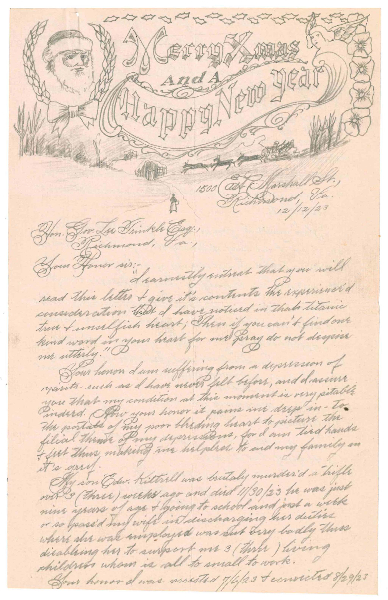 Merry Xmas
And A
Happy New Year
1800 W. Marshall St.,
Richmond, Va.
12/12/23
Hon. Gov. Lee Trinkle Esq.,
Richmond, Va.,
Your Honor sir:-
I earnestly entreat that you will
read this letter & give it's contents the
consideration that I have noticed in that titanic
true & unselfish heart; Then if you can't find one
kind word in your heart for me pray do not depose
me utterly."
Your honor I am suffering from a depression of
spirits such as I have never felt before, and I assure
you that my condition at this moment is very pitable
indeed. Now your honor it pains me deep in - to
the portals of my poor bleeding heart to picture the
filial throes of my depressions, for I am tied hands
& feet thus making me helpless to aid my family in
it's grief.
My son Edw. was brutaly murder'd a trifle
over 3 (three) weeks ago and died 11/30/23 he was just
nine years of age & going to school and just a week
or so passed my wife in discharging her duties
where she was employed was cut very badly thus
disabling her to support our 3 (three) living
children whom is all to small to work.
Your honor I was arrested 7/6/23 & convicted 8/29/23